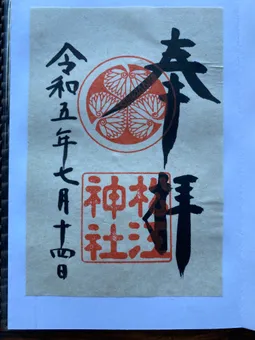 奉拝
松江
神社
令和五年七月十四日